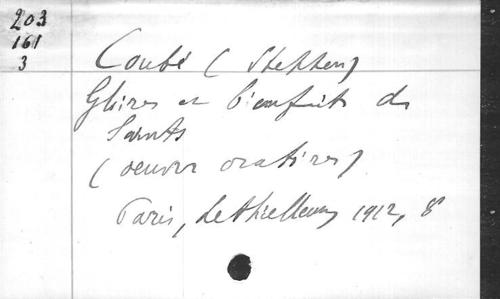 203
161
3
Coubé (Stephen)
Gloires et bienfaits des
Saints
(oeuvres oratoires)
Paris, Lethielleux, 1912, 8°